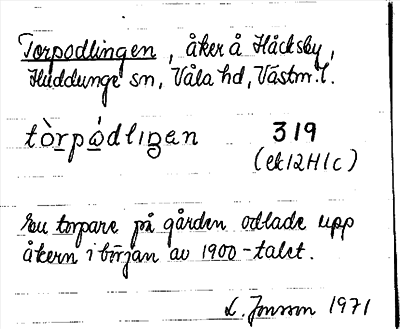 Torpodlingen, åker å Håcksby,
Huddunge sn, Våla hd, Västm. l.
tòrpådlıŋen 319
(ek 12H1c)
En torpare på gården odlade upp
åkern i början av 1900-talet.
L. Jonsson 1971